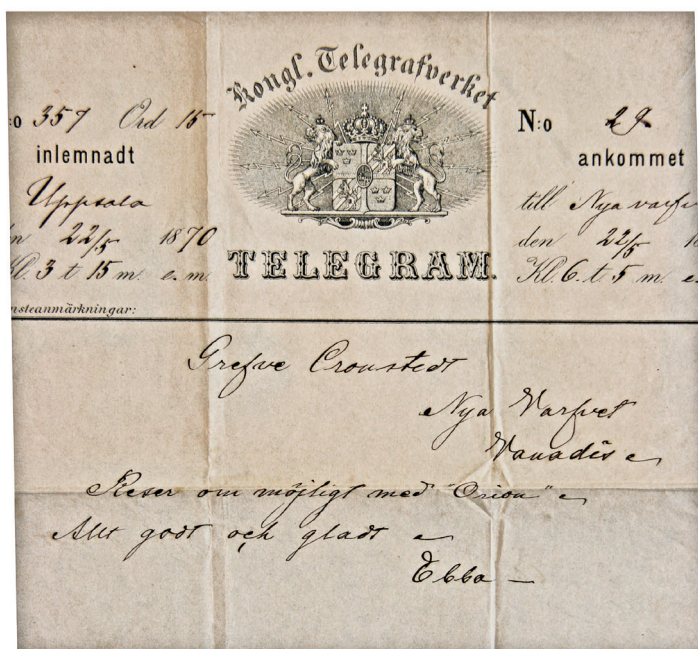 Kongl. Telegrafverket
:o 357 Ord 15
inlemnadt
Uppsala
n 22/5 1870
Kl. 3 t 15 m. e. m.
TELEGRAM.
N:o 29
ankommet
till Nya varfv
den 22/5 1
Kl. 6 t. 5 m e.
nsteanmärkningar:
Grefve Cronstedt
Nya Varfvet
Vanadis
Reser om möjligt med "Orion"
Allt godt och gladt
Ebba —